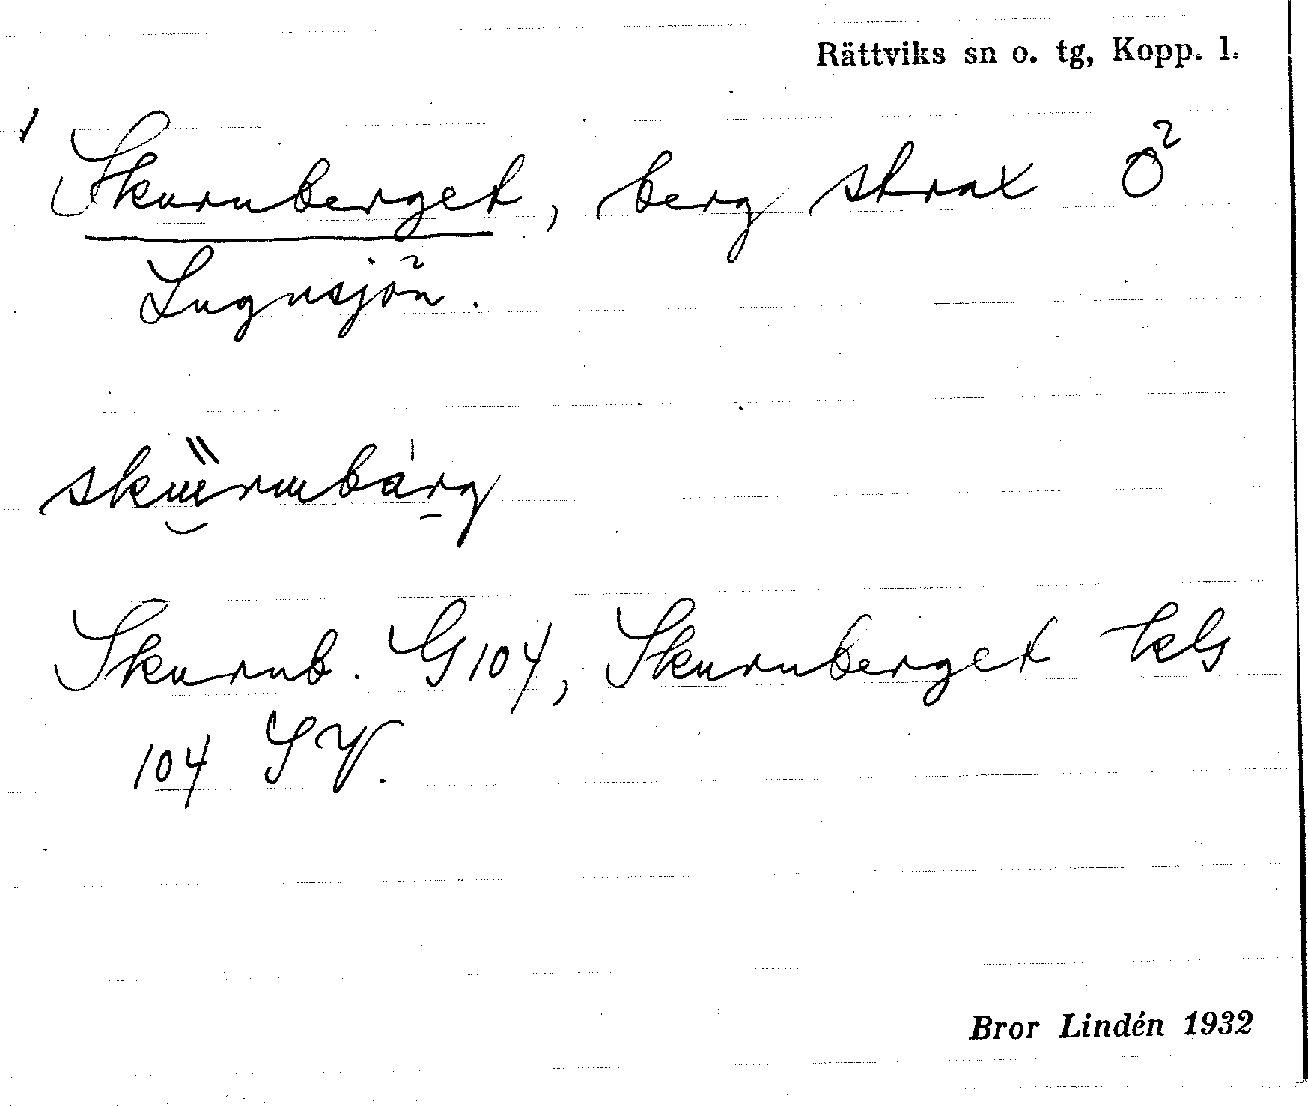 Rättviks sn o. tg, Kopp. l.
Skurnberget, berg strax Ö
Lugnsjön.
Skurnb. G104, Skurnberget kls
104 SV.
Bror Lindén 1932